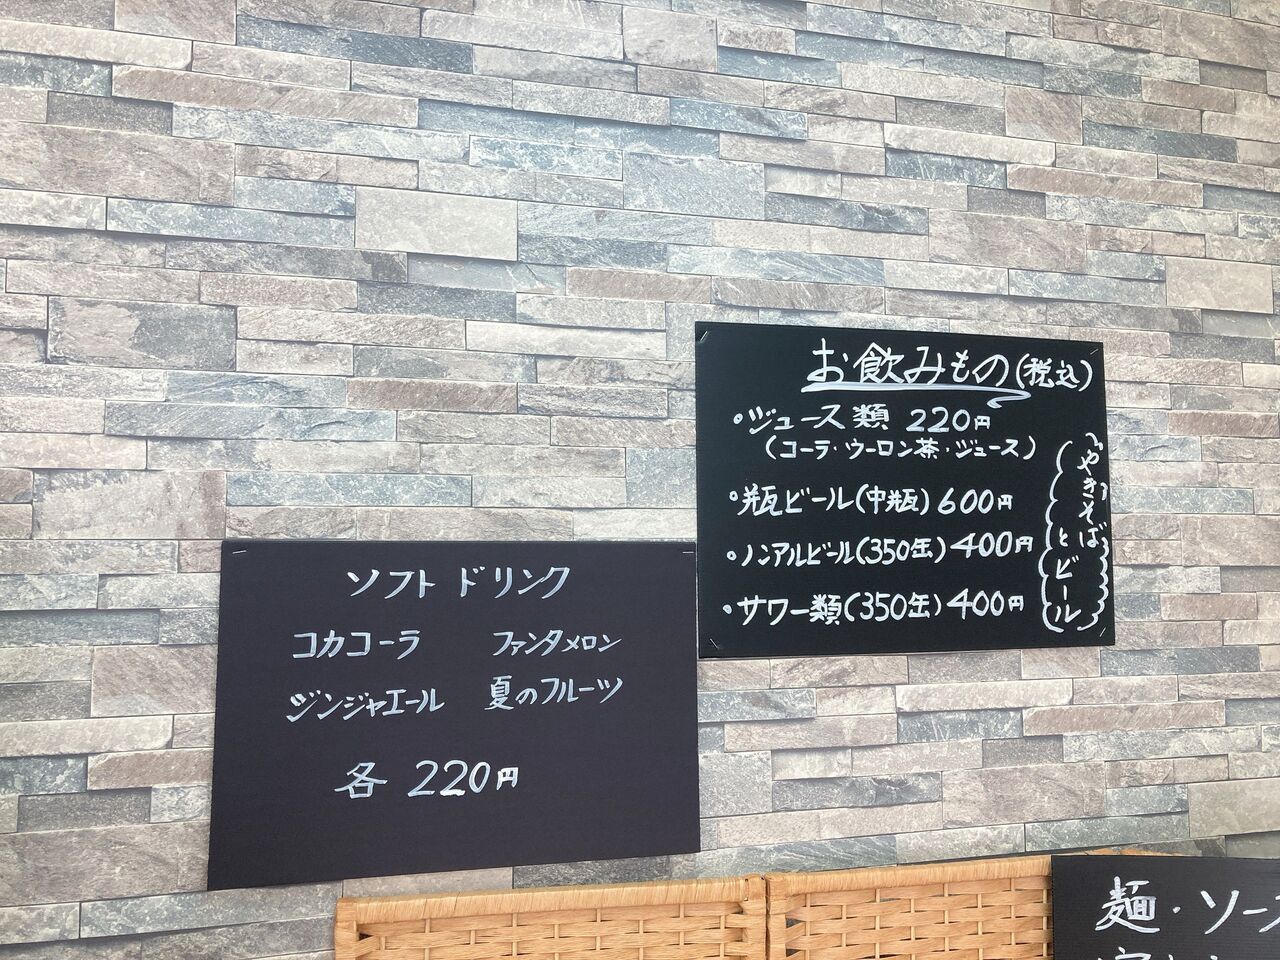 お飲みもの(税込)
・ジュース類 220円
(コーラ・ウーロン茶・ジュース)
・瓶ビール(中瓶)600円
・ノンアルビール(350缶)400円
・サワー類(350缶)400円
やきそばとビール
ソフトドリンク
コカコーラ ファンタメロン
ジンジャエール 夏のフルーツ
各 220円
麺・ソース